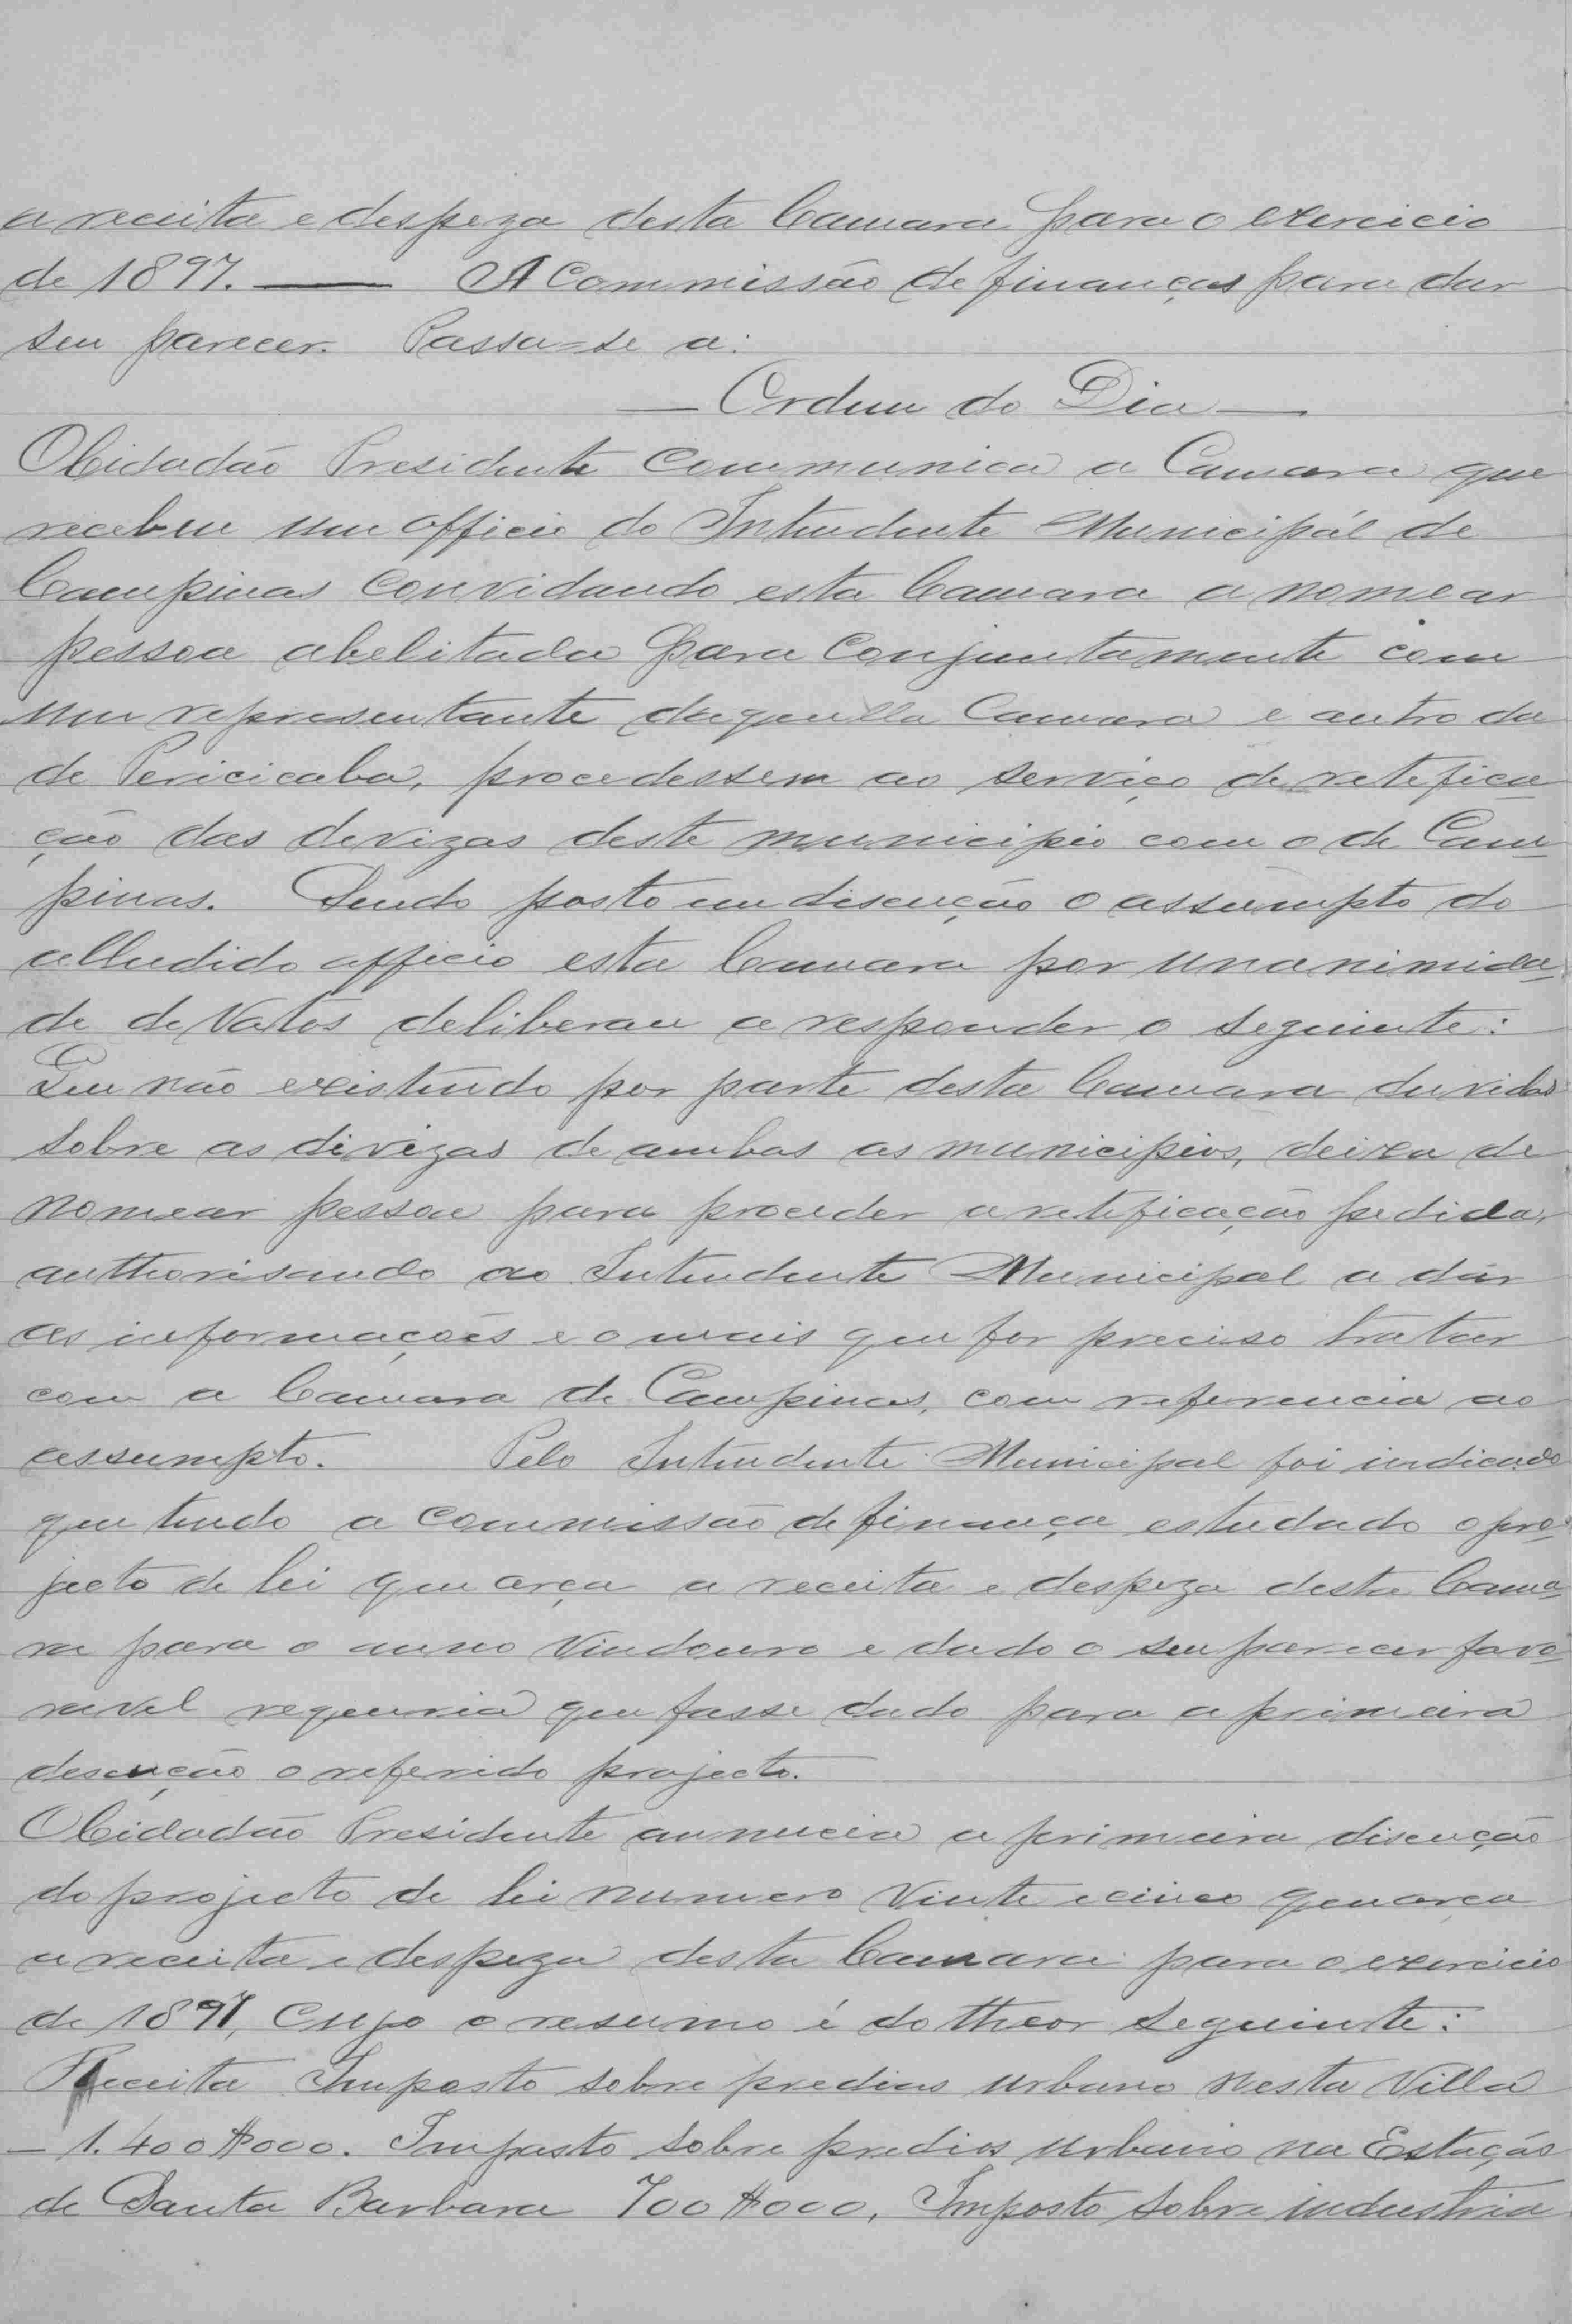 a receita e despeza desta Camara para o exercicio
de 1897. — A Commissão de finanças para dar
seu parecer. Passa-se a:
— Ordem do Dia —
O Cidadão Presidente communica a Camara que
recebeu um officio do Intendente Municipál de
Campinas convidando esta Camara a nomear
pessoa abelitada para conjuntamente com
um representante daquella Camara e outro da
de Pericicaba, procedessem ao serviço de retefica-
ção das devizas deste municipio com o de Cam-
pinas. Sendo posto em discução o assumpto do
alludido officio esta Camara por unanimida-
de de Votos deliberou a responder o seguinte:
Que não existindo por parte desta Camara duvidas
sobre as divizas de ambos os municipios, deixa de
nomear pessoa para proceder a reteficação pedida,
authorisando ao Intendente Municipal a dár
as informações e o mais que for preciso tratar
com a Camara de Campinas, com referencia ao
assumpto. Pelo Intendente Municipal foi indicado
que tendo a commissão de finança estudado o pro-
jecto de lei que orça a receita e despeza desta Cama-
ra para o anno vindouro e dado o seu parecer favo-
ravel requeria que fosse dado para a primeira
descução o referido projecto.
O Cidadão Presidente annuncia a primeira discução
do projecto de lei numero vinte e cinco que orça
a receita e despeza desta Camara para o exercicio
de 1897, cujo o resumo é do theor seguinte:
Receita Imposto sobre predios urbano nesta Villa
— 1.400$000. Imposto sobre predios urbano na Estação
de Santa Barbara 700$000, Imposto sobre industria